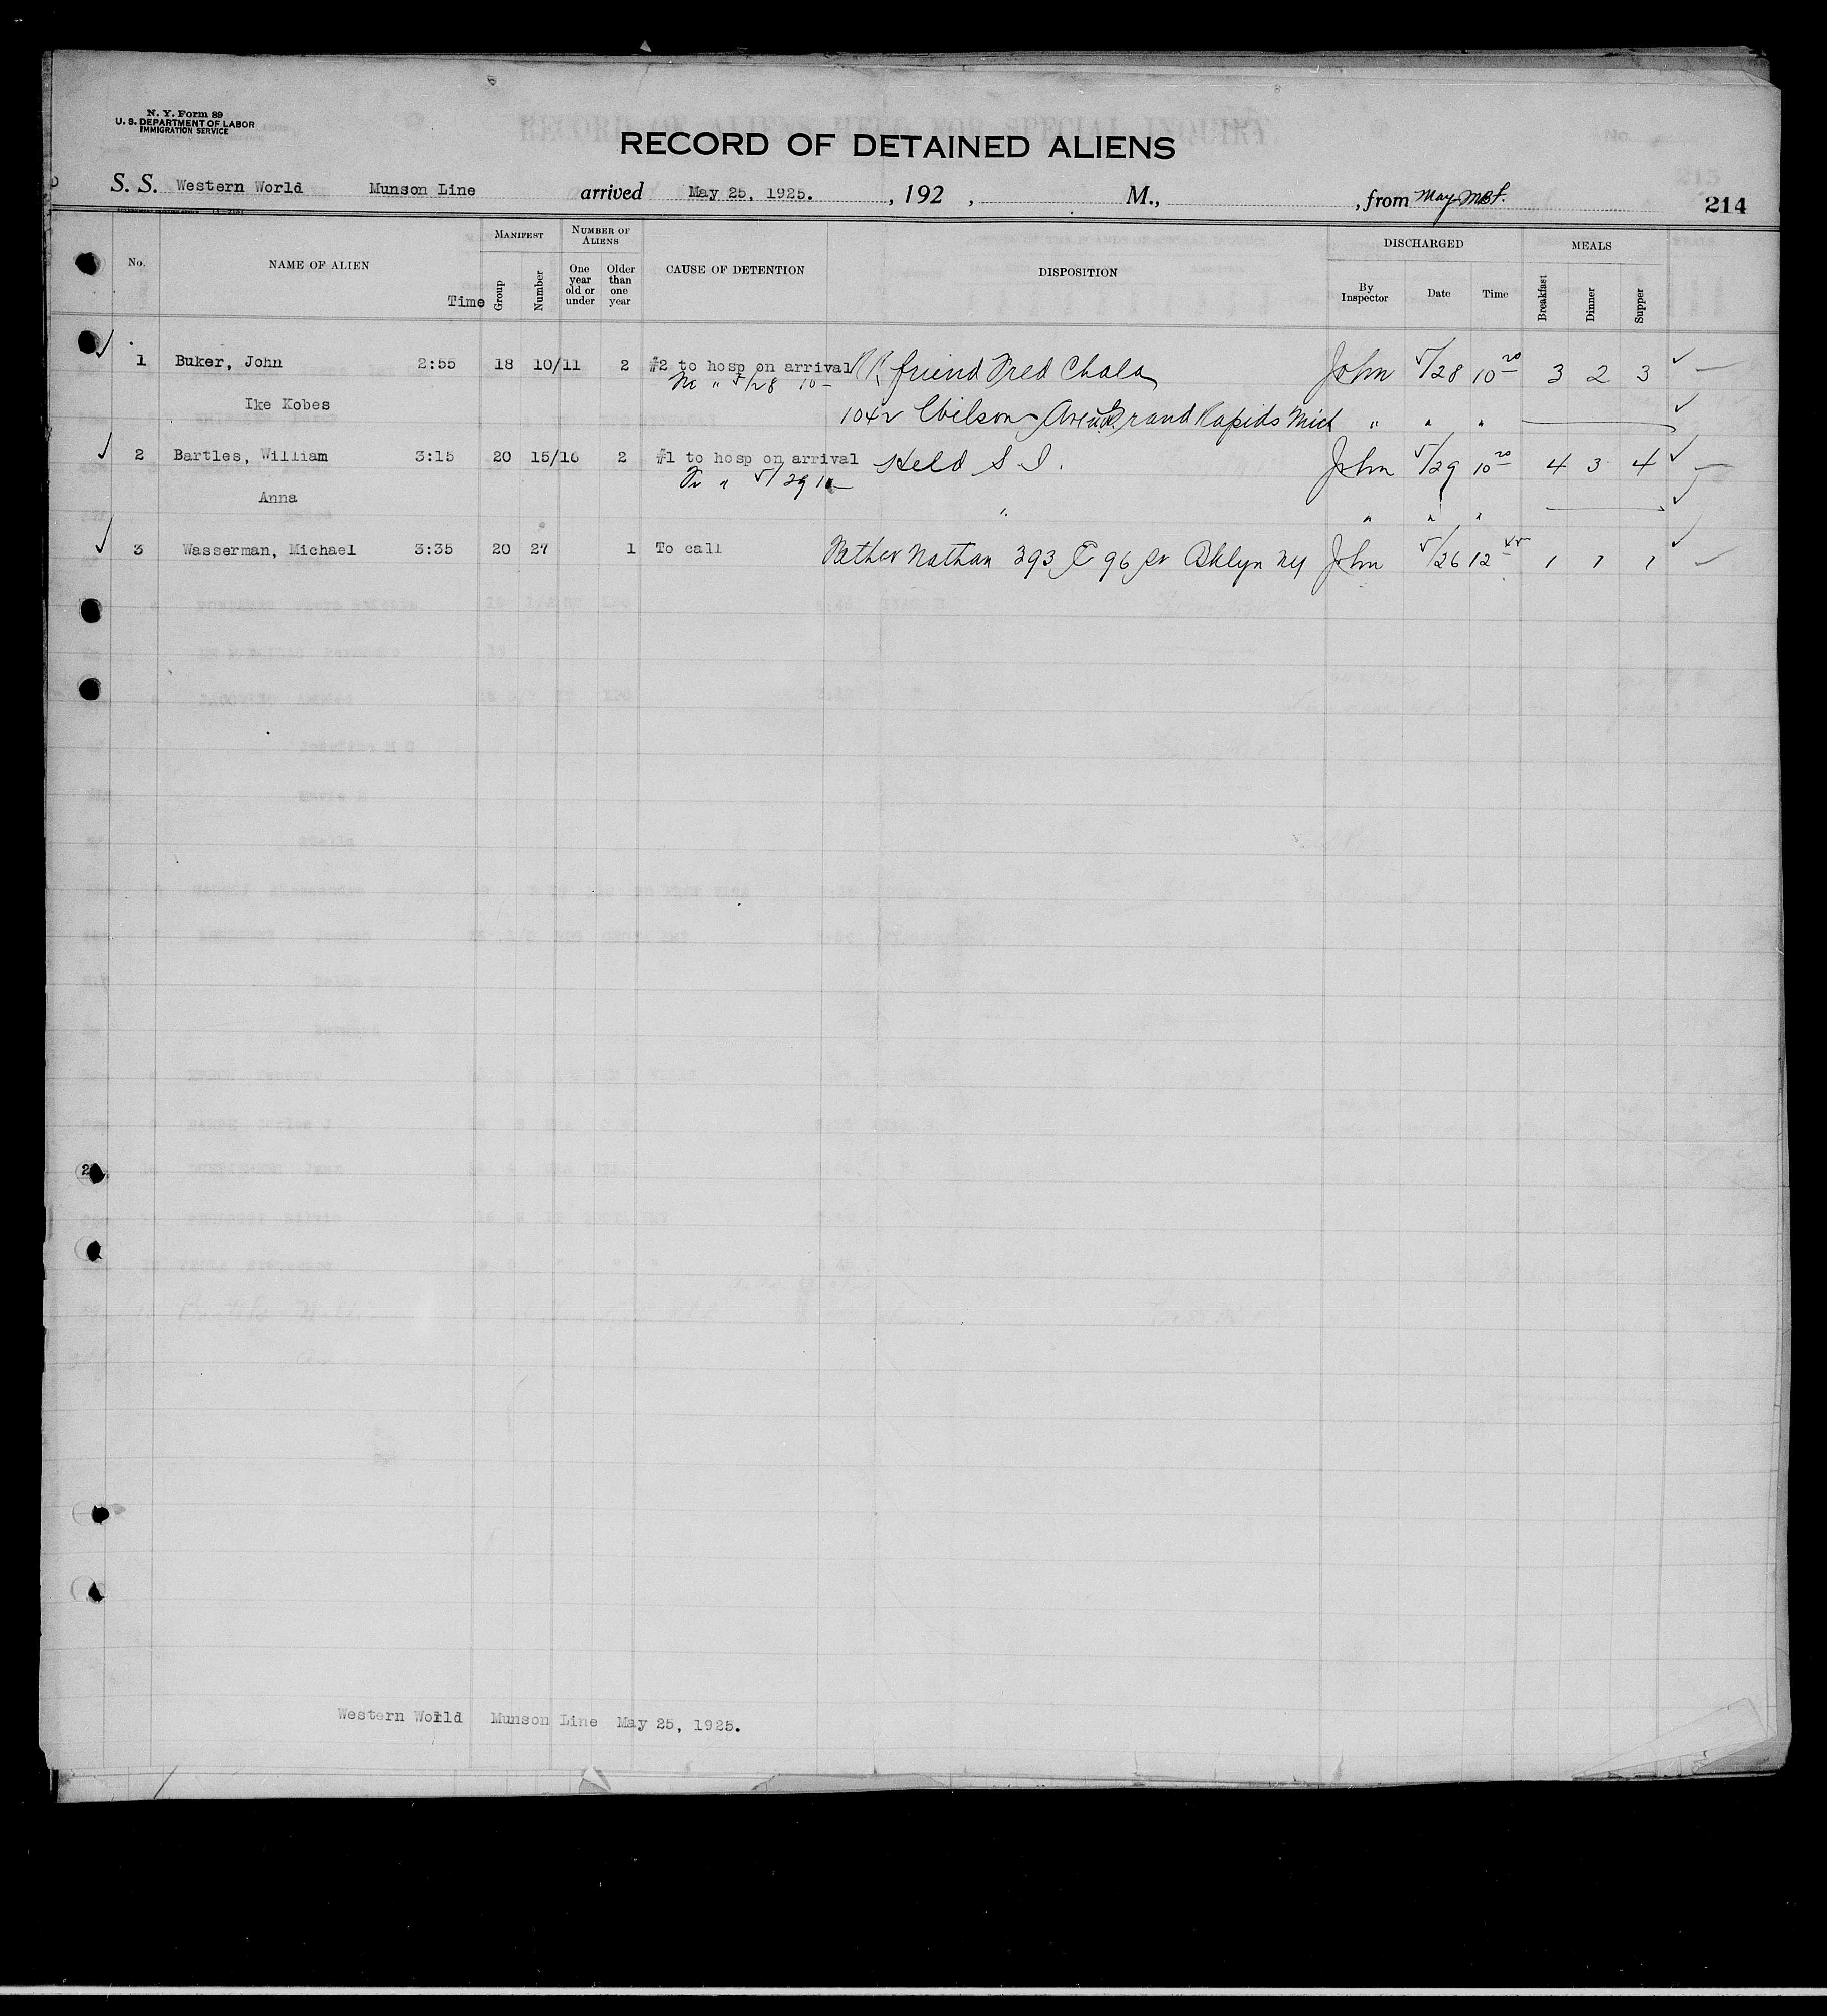 N. Y. Form 89
U. S. DEPARTMENT OF LABOR
IMMIGRATION SERVICE
RECORD OF DETAINED ALIENS
S. S. Western World Munson Line arrived May 25, 1925. , 192 , M., , from
214
No. NAME OF ALIEN Time MANIFEST Group Number NUMBER OF ALIENS One year old or under Older than one year CAUSE OF DETENTION DISPOSITION DISCHARGED By Inspector Date Time MEALS Breakfast Dinner Supper
1 Buker, John 2:55 18 10/11 2 #2 to hosp on arrival RR friend Fred Chala John 5/28 10 20 3 2 3
" 5/28 10
Ike Kobes 1042 Wilson Ave Grand Rapids Mich " " "
2 Bartles, William 3:15 20 15/16 2 #1 to hosp on arrival Held S I. John 5/29 10 20 4 3 4
Fr " 5/29 10
Anna " " " "
3 Wasserman, Michael 3:35 20 27 1 To call Father Nathan 393 E 96 St Bklyn NY John 5/26 12 45 1 1 1
Western World Munson Line May 25, 1925.